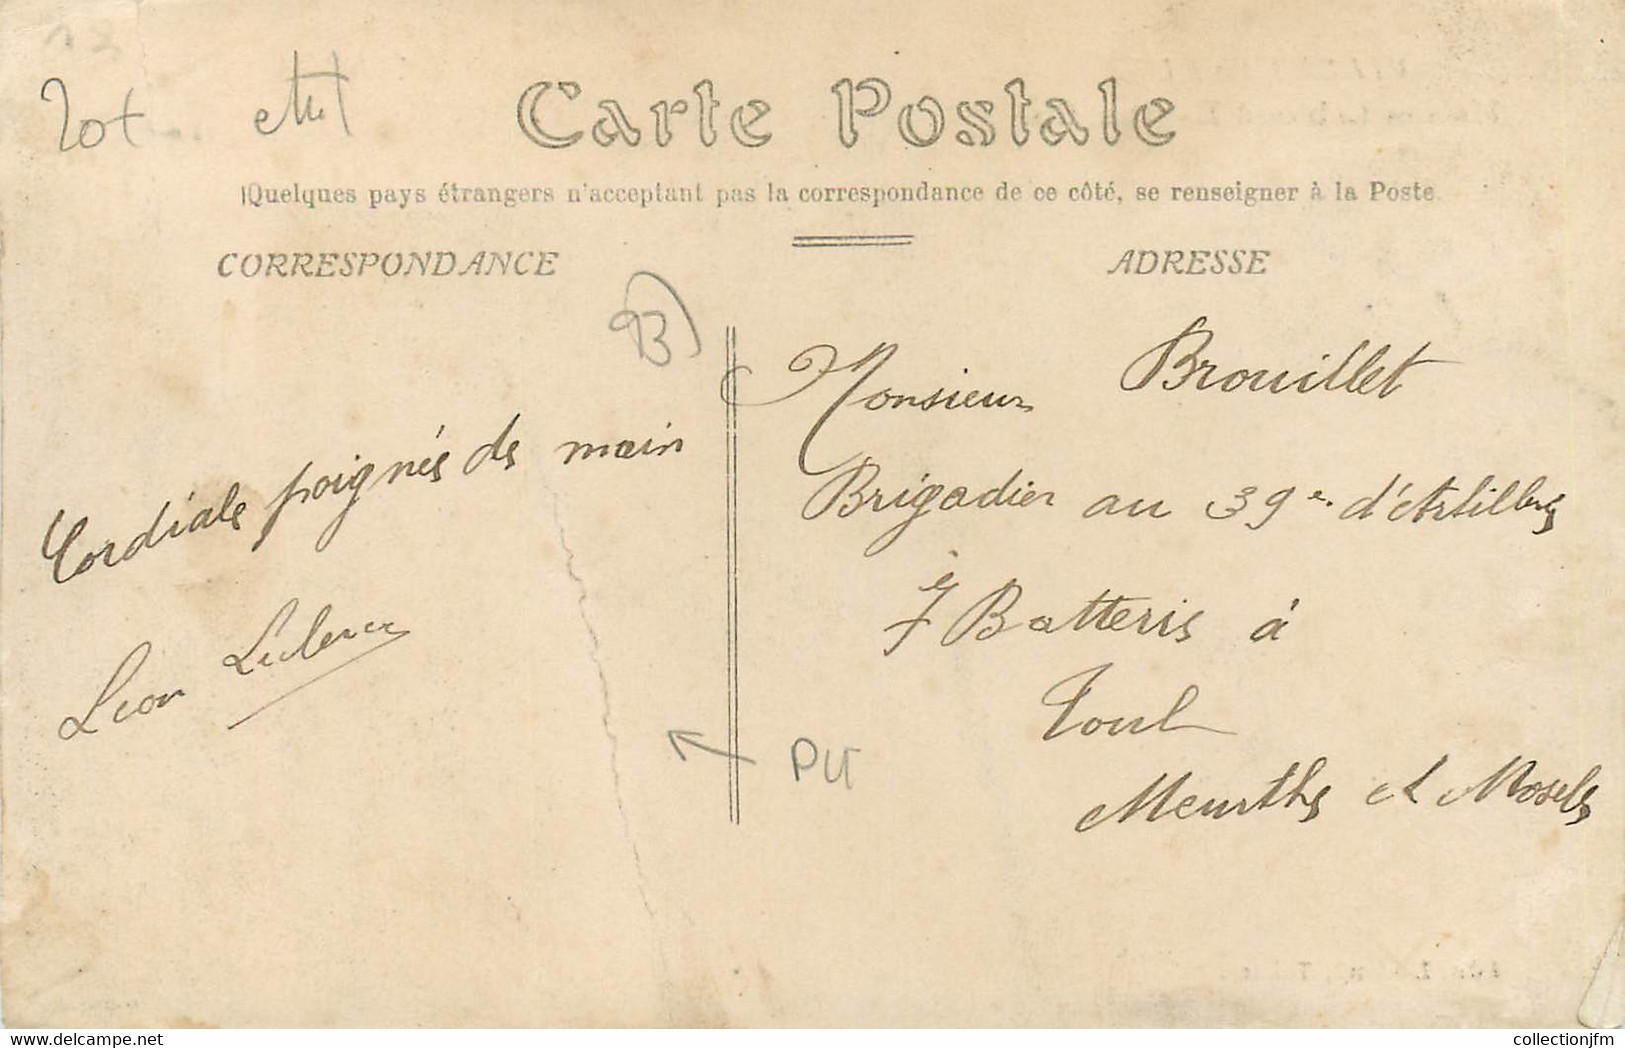 Lot
Carte Postale
Quelques pays étrangers n'acceptant pas la correspondance de ce côté, se renseigner à la Poste
CORRESPONDANCE
ADRESSE
Cordiale poignés de main
Léon Leclerc
Monsieur Brouillet
Brigadier au 39e d'Artillerie
7 Batterie à
Toul
Meurthe et Moselle
PLI
collectionjfm